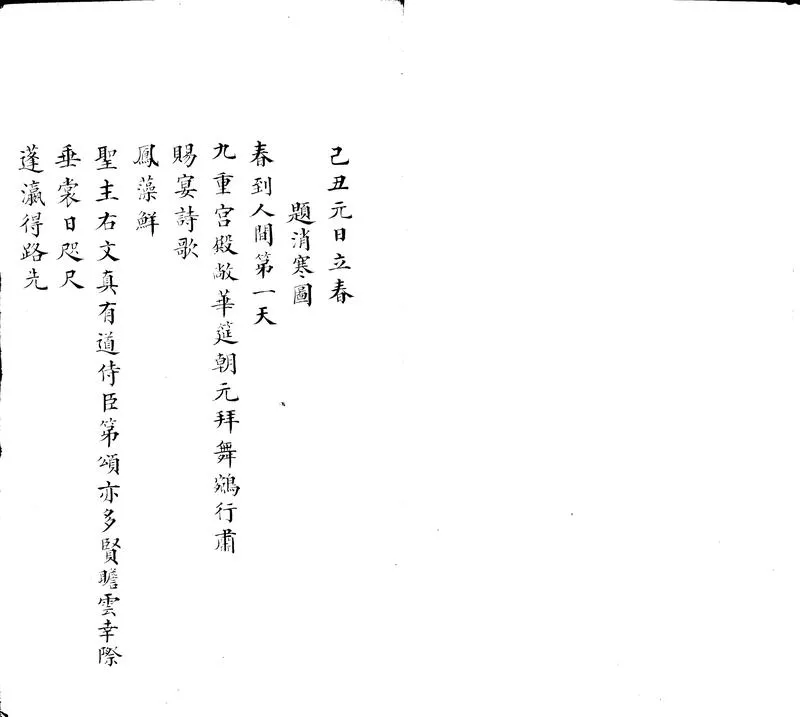 己丑元日立春
題消寒圖
春到人間第一天
九重宮殿敞華筵朝元拜舞鵷行肅
賜宴詩歌
鳳藻鮮
聖主右文真有道侍臣第頌亦多賢瞻雲幸際
垂裳日咫尺
蓬瀛得路先